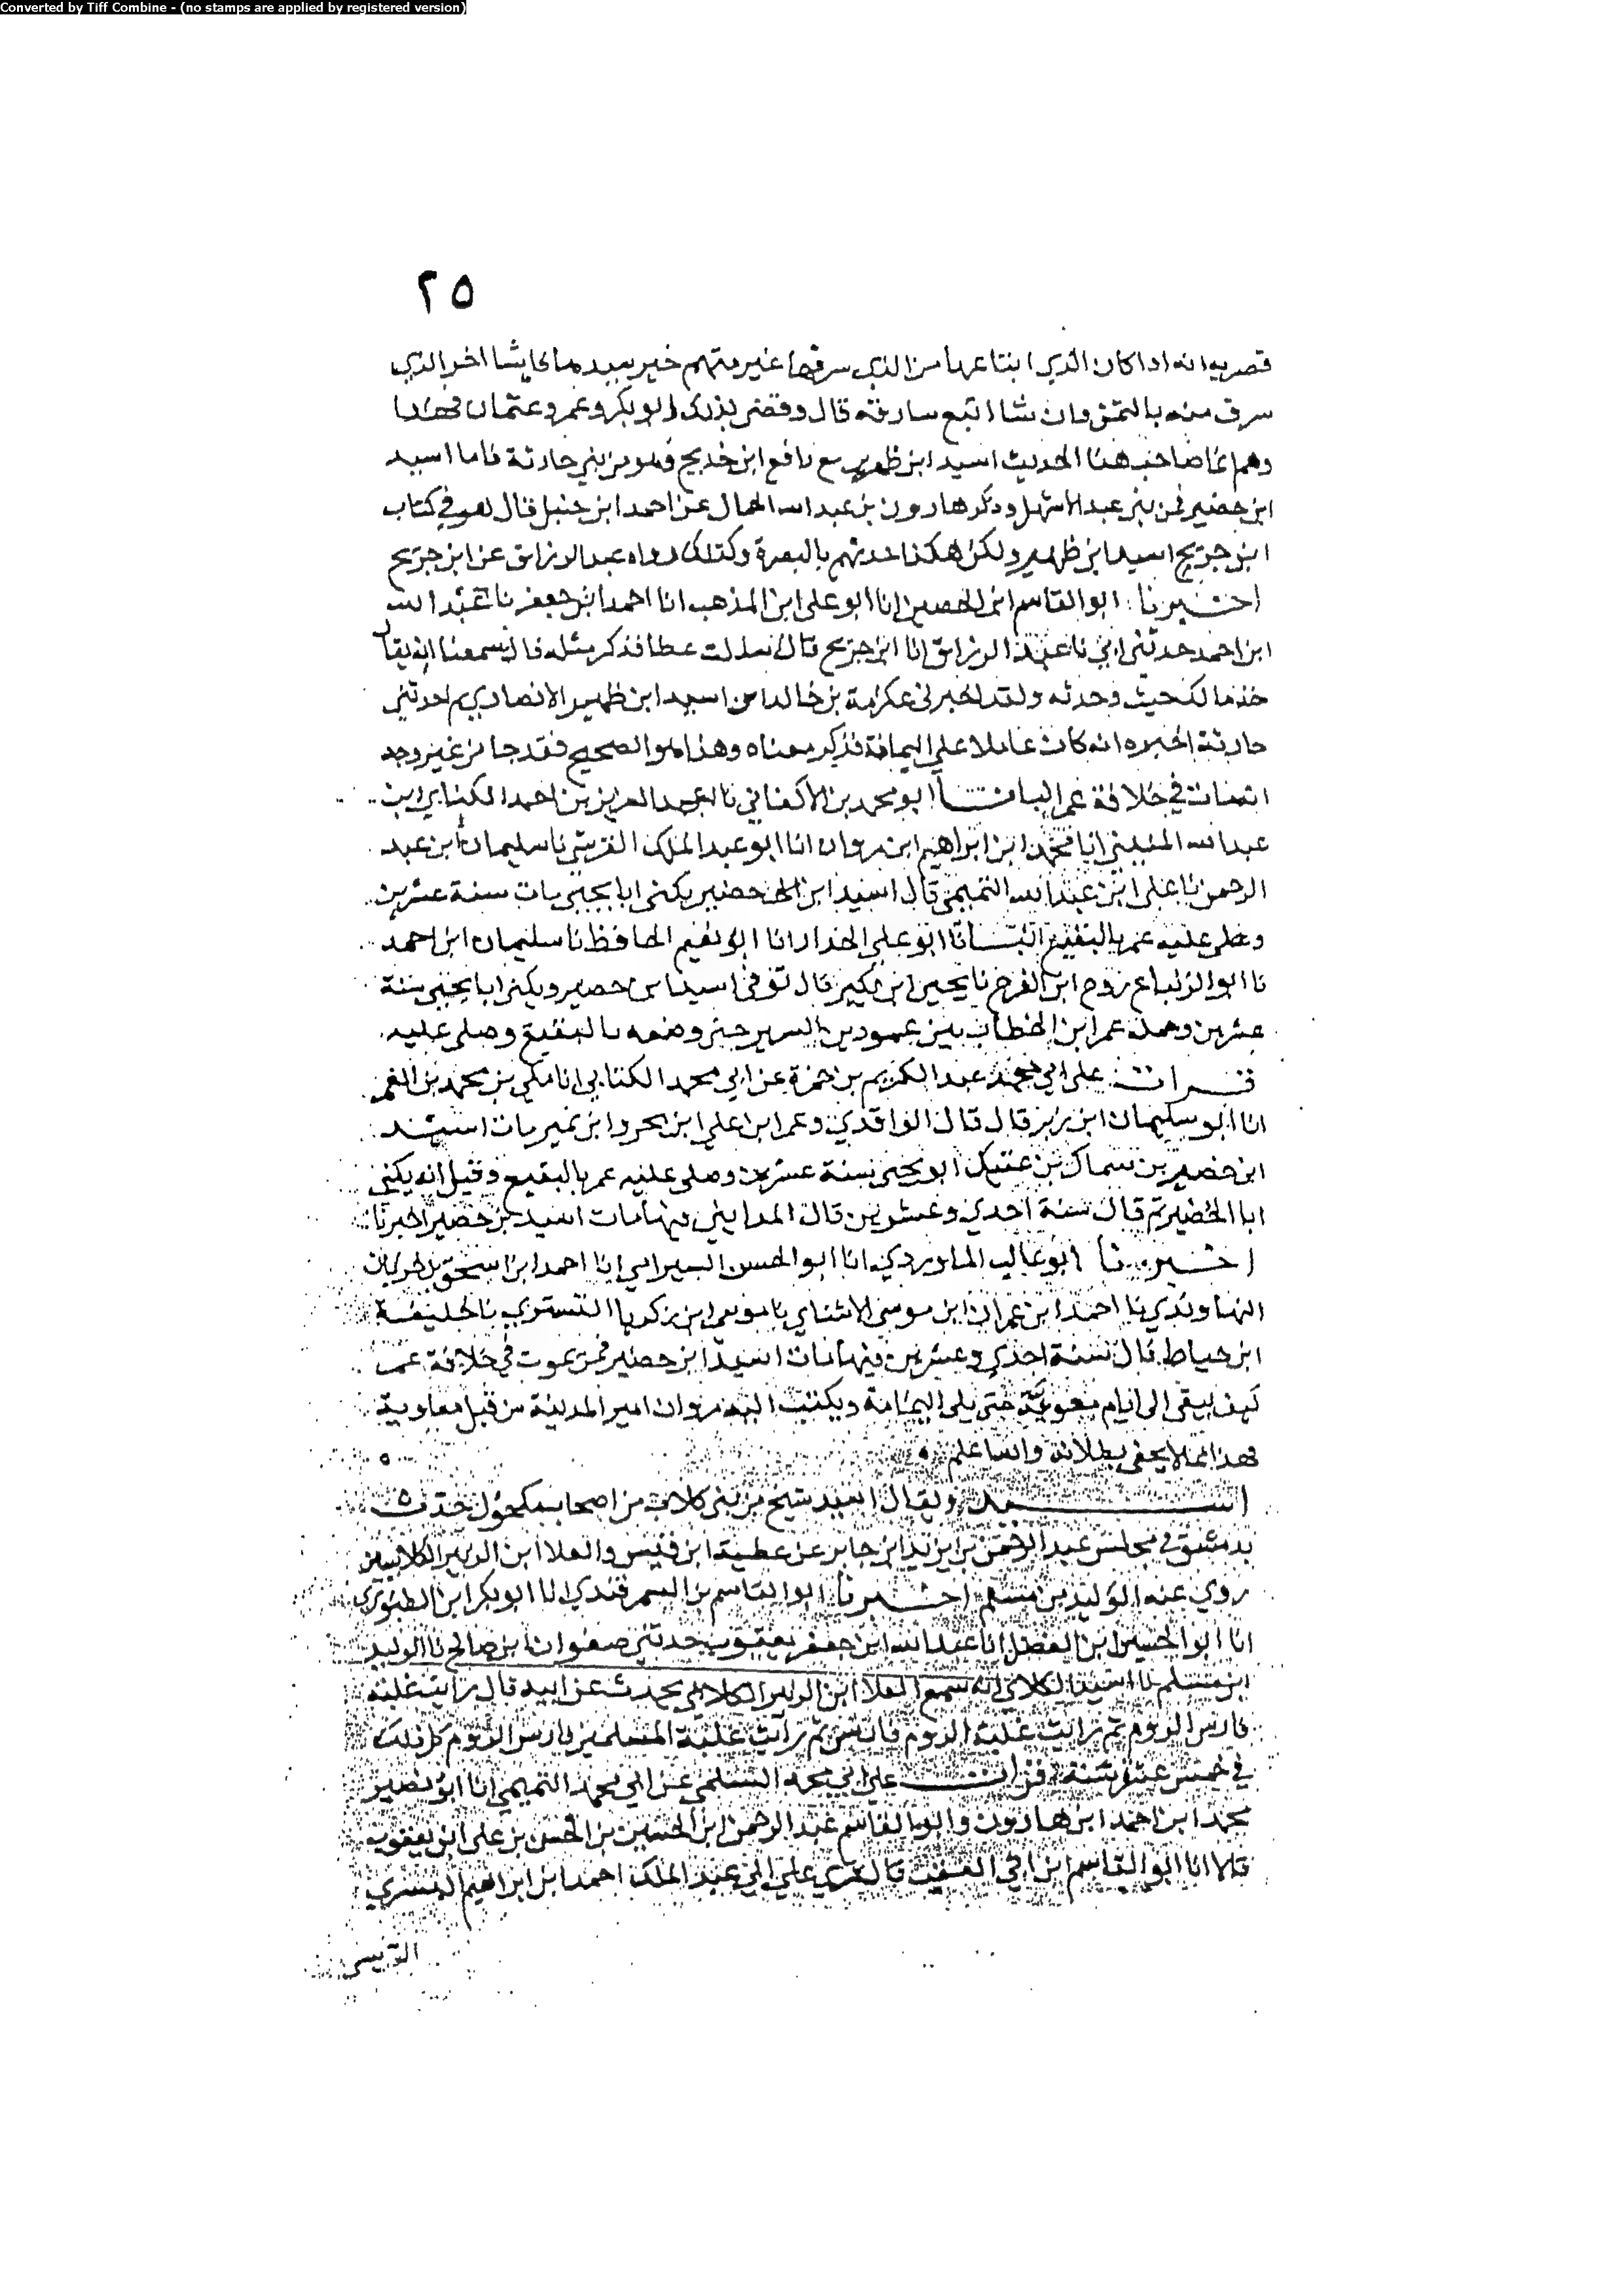 Converted by Tiff Combine - (no stamps are applied by registered version)
٢٥
انه اذا كان الذي ابتاعها من الذي سرقها غير متهم خير سيدها اخذ الذي
سرق منه بالثمن وان شا اتبع سارقه قال وقضى بذلك ابو بكر وعمر وعثمان
صاحب هذا الحديث اسيد ابن ظهير مع رافع ابن خديج وهو من بني حارثة فاما اسيد
ابن حضير فمن بني عبد الاشهل وذكر هارون بن عبد الله الحمال عن احمد ابن حنبل قال هو في كتاب
ابن جريج اسيد ابن ظهير ولكن هكذا حدثهم بالبصرة وكذلك رواه عبد الرزاق عن ابن جريج
اخبرنا ابو القاسم ابن الحصين انا ابو علي ابن المذهب انا احمد ابن جعفر نا عبد الله
ابن احمد حدثني ابي نا عبد الرزاق انا ابن جريج قال سالت عطا فذكر مثله قال سمعنا انه يقال
خذ مالك حيث وجدته ولقد اخبرني عكرمة بن خالد ان اسيد ابن ظهير الانصاري ثم احد بني
حارثة اخبره انه كان عاملا على اليمامة فذكر معناه وهذا هو الصحيح فقد جا من غير وجه
انه مات في خلافة عمر ابو محمد بن الاكفاني نا عبد العزيز بن احمد الكتاني
عبد الله انا محمد ابن ابراهيم ابن مروان انا ابو عبد الملك القرشي نا سليمان ابن عبد
الرحمن نا علي ابن عبد الله التميمي قال اسيد ابن حضير يكنى ابا يحيى مات سنة عشرين
وصلى عليه عمر بالبقيع ابو علي الحداد انا ابو نعيم الحافظ نا سليمان ابن احمد
نا ابو الزنباع روح ابن الفرج نا يحيى ابن بكير قال توفي اسيد ابن حضير ويكنى ابا يحيى سنة
عشرين وحمله عمر ابن الخطاب بين عمودين السرير حتى وضعه بالبقيع وصلى عليه
قرات على ابي محمد عبد الكريم بن حمزة عن ابي محمد الكتاني انا مكي بن محمد بن الغمر
انا ابو سليمان ابن زبر قال قال الواقدي وعمر ابن علي ابن بحر وابن نمير مات اسيد
ابن حضير بن سماك بن عتيك ابو يحيى سنة عشرين وصلى عليه عمر بالبقيع وقيل انه يكنى
ابا الحضير ثم قال سنة احدى وعشرين قال المدايني فيها مات اسيد بن حضير اخبرنا
اخبرنا ابو غالب الماوردي انا ابو الحسن السيرافي انا احمد ابن اسحق بن خربان
النهاوندي نا احمد ابن عمران ابن موسى الاشناني نا موسى ابن زكريا التستري نا خليفة
ابن خياط قال سنة احدى وعشرين فيها مات اسيد ابن حضير فمن يموت في خلافة عمر
كيف يبقى الى ايام معوية حتى يلي اليمامة ويكتب اليه مروان امير المدينة من قبل معاوية
هذا مما لا يخفى بطلانه والله اعلم
اسيد ويقال اسيد شيخ من بني كلاب من اصحاب مكحول حدث
بدمشق في مجلس عبد الرحمن بن يزيد ابن جابر عن عطية ابن قيس والعلا ابن الزبير الكلابيين
روى عنه الوليد بن مسلم اخبرنا ابو القاسم بن السمرقندي انا ابو بكر ابن الطبري
انا ابو الحسين ابن الفضل انا عبد الله ابن جعفر نا يعقوب حدثني صفوان ابن صالح نا الوليد
ابن مسلم نا اسيد الكلابي انه سمع العلا ابن الزبير الكلابي يحدث عن ابيه قال رايت غلبة
فارس الروم ثم رايت غلبة الروم فارس ثم رايت غلبة المسلمين فارس الروم كل ذلك
في خمس عشرة سنة قرات على ابي محمد السلمي عن ابي محمد التميمي انا ابو نصر
محمد ابن احمد ابن هارون وابو القاسم عبد الرحمن ابن الحسين بن الحسن بن علي ابن يعقوب
قالا انا ابو القاسم ابن ابي العقب قال قري على ابي عبد الملك احمد ابن ابراهيم البسري